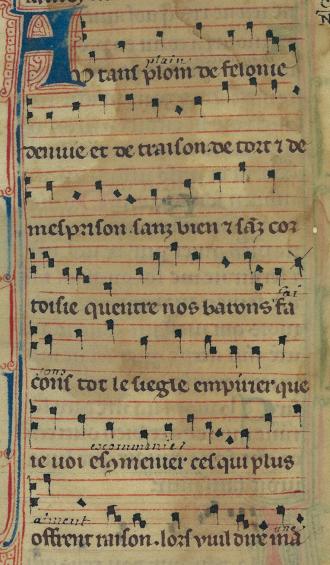 plain
AU tans plain de felonie
denuie et de traison de tort ⁊ de
mesprison sanz bien ⁊ sãz cor
toisie quentre nos barons fa
cons tot le siegle empirier que
ie uoi escõmenier ces qui plus
offrent raison lors vuil dire ma